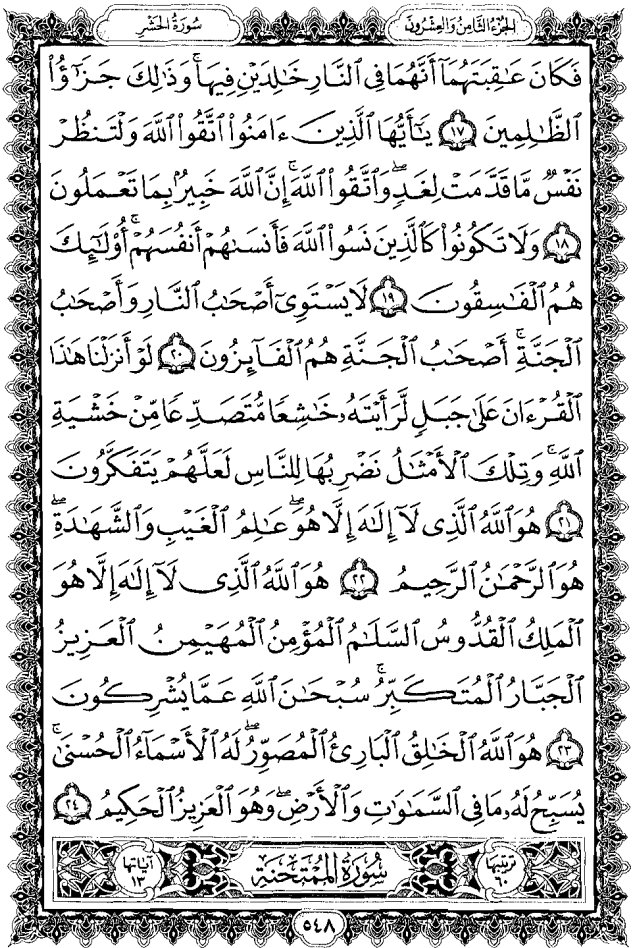 الجُزْءُ الثَّامِنُ وَالعِشْرُونَ
سُورَةُ الحَشْرِ
فَكَانَ عَٰقِبَتَهُمَآ أَنَّهُمَا فِى ٱلنَّارِ خَٰلِدَيْنِ فِيهَا ۚ وَذَٰلِكَ جَزَٰٓؤُا۟
ٱلظَّٰلِمِينَ ١٧ يَٰٓأَيُّهَا ٱلَّذِينَ ءَامَنُوا۟ ٱتَّقُوا۟ ٱللَّهَ وَلْتَنظُرْ
نَفْسٌ مَّا قَدَّمَتْ لِغَدٍ ۖ وَٱتَّقُوا۟ ٱللَّهَ ۚ إِنَّ ٱللَّهَ خَبِيرٌۢ بِمَا تَعْمَلُونَ
١٨ وَلَا تَكُونُوا۟ كَٱلَّذِينَ نَسُوا۟ ٱللَّهَ فَأَنسَىٰهُمْ أَنفُسَهُمْ ۚ أُو۟لَٰٓئِكَ
هُمُ ٱلْفَٰسِقُونَ ١٩ لَا يَسْتَوِىٓ أَصْحَٰبُ ٱلنَّارِ وَأَصْحَٰبُ
ٱلْجَنَّةِ ۚ أَصْحَٰبُ ٱلْجَنَّةِ هُمُ ٱلْفَآئِزُونَ ٢٠ لَوْ أَنزَلْنَا هَٰذَا
ٱلْقُرْءَانَ عَلَىٰ جَبَلٍ لَّرَأَيْتَهُۥ خَٰشِعًا مُّتَصَدِّعًا مِّنْ خَشْيَةِ
ٱللَّهِ ۚ وَتِلْكَ ٱلْأَمْثَٰلُ نَضْرِبُهَا لِلنَّاسِ لَعَلَّهُمْ يَتَفَكَّرُونَ
٢١ هُوَ ٱللَّهُ ٱلَّذِى لَآ إِلَٰهَ إِلَّا هُوَ ۖ عَٰلِمُ ٱلْغَيْبِ وَٱلشَّهَٰدَةِ ۖ
هُوَ ٱلرَّحْمَٰنُ ٱلرَّحِيمُ ٢٢ هُوَ ٱللَّهُ ٱلَّذِى لَآ إِلَٰهَ إِلَّا هُوَ
ٱلْمَلِكُ ٱلْقُدُّوسُ ٱلسَّلَٰمُ ٱلْمُؤْمِنُ ٱلْمُهَيْمِنُ ٱلْعَزِيزُ
ٱلْجَبَّارُ ٱلْمُتَكَبِّرُ ۚ سُبْحَٰنَ ٱللَّهِ عَمَّا يُشْرِكُونَ
٢٣ هُوَ ٱللَّهُ ٱلْخَٰلِقُ ٱلْبَارِئُ ٱلْمُصَوِّرُ ۖ لَهُ ٱلْأَسْمَآءُ ٱلْحُسْنَىٰ ۚ
يُسَبِّحُ لَهُۥ مَا فِى ٱلسَّمَٰوَٰتِ وَٱلْأَرْضِ ۖ وَهُوَ ٱلْعَزِيزُ ٱلْحَكِيمُ ٢٤
ترتيبها ٦٠
سُورَةُ المُمْتَحَنَةِ
آياتها ١٣
٥٤٨